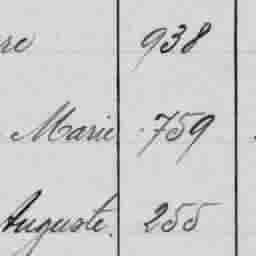 re 938
Marie 759
Auguste. 255